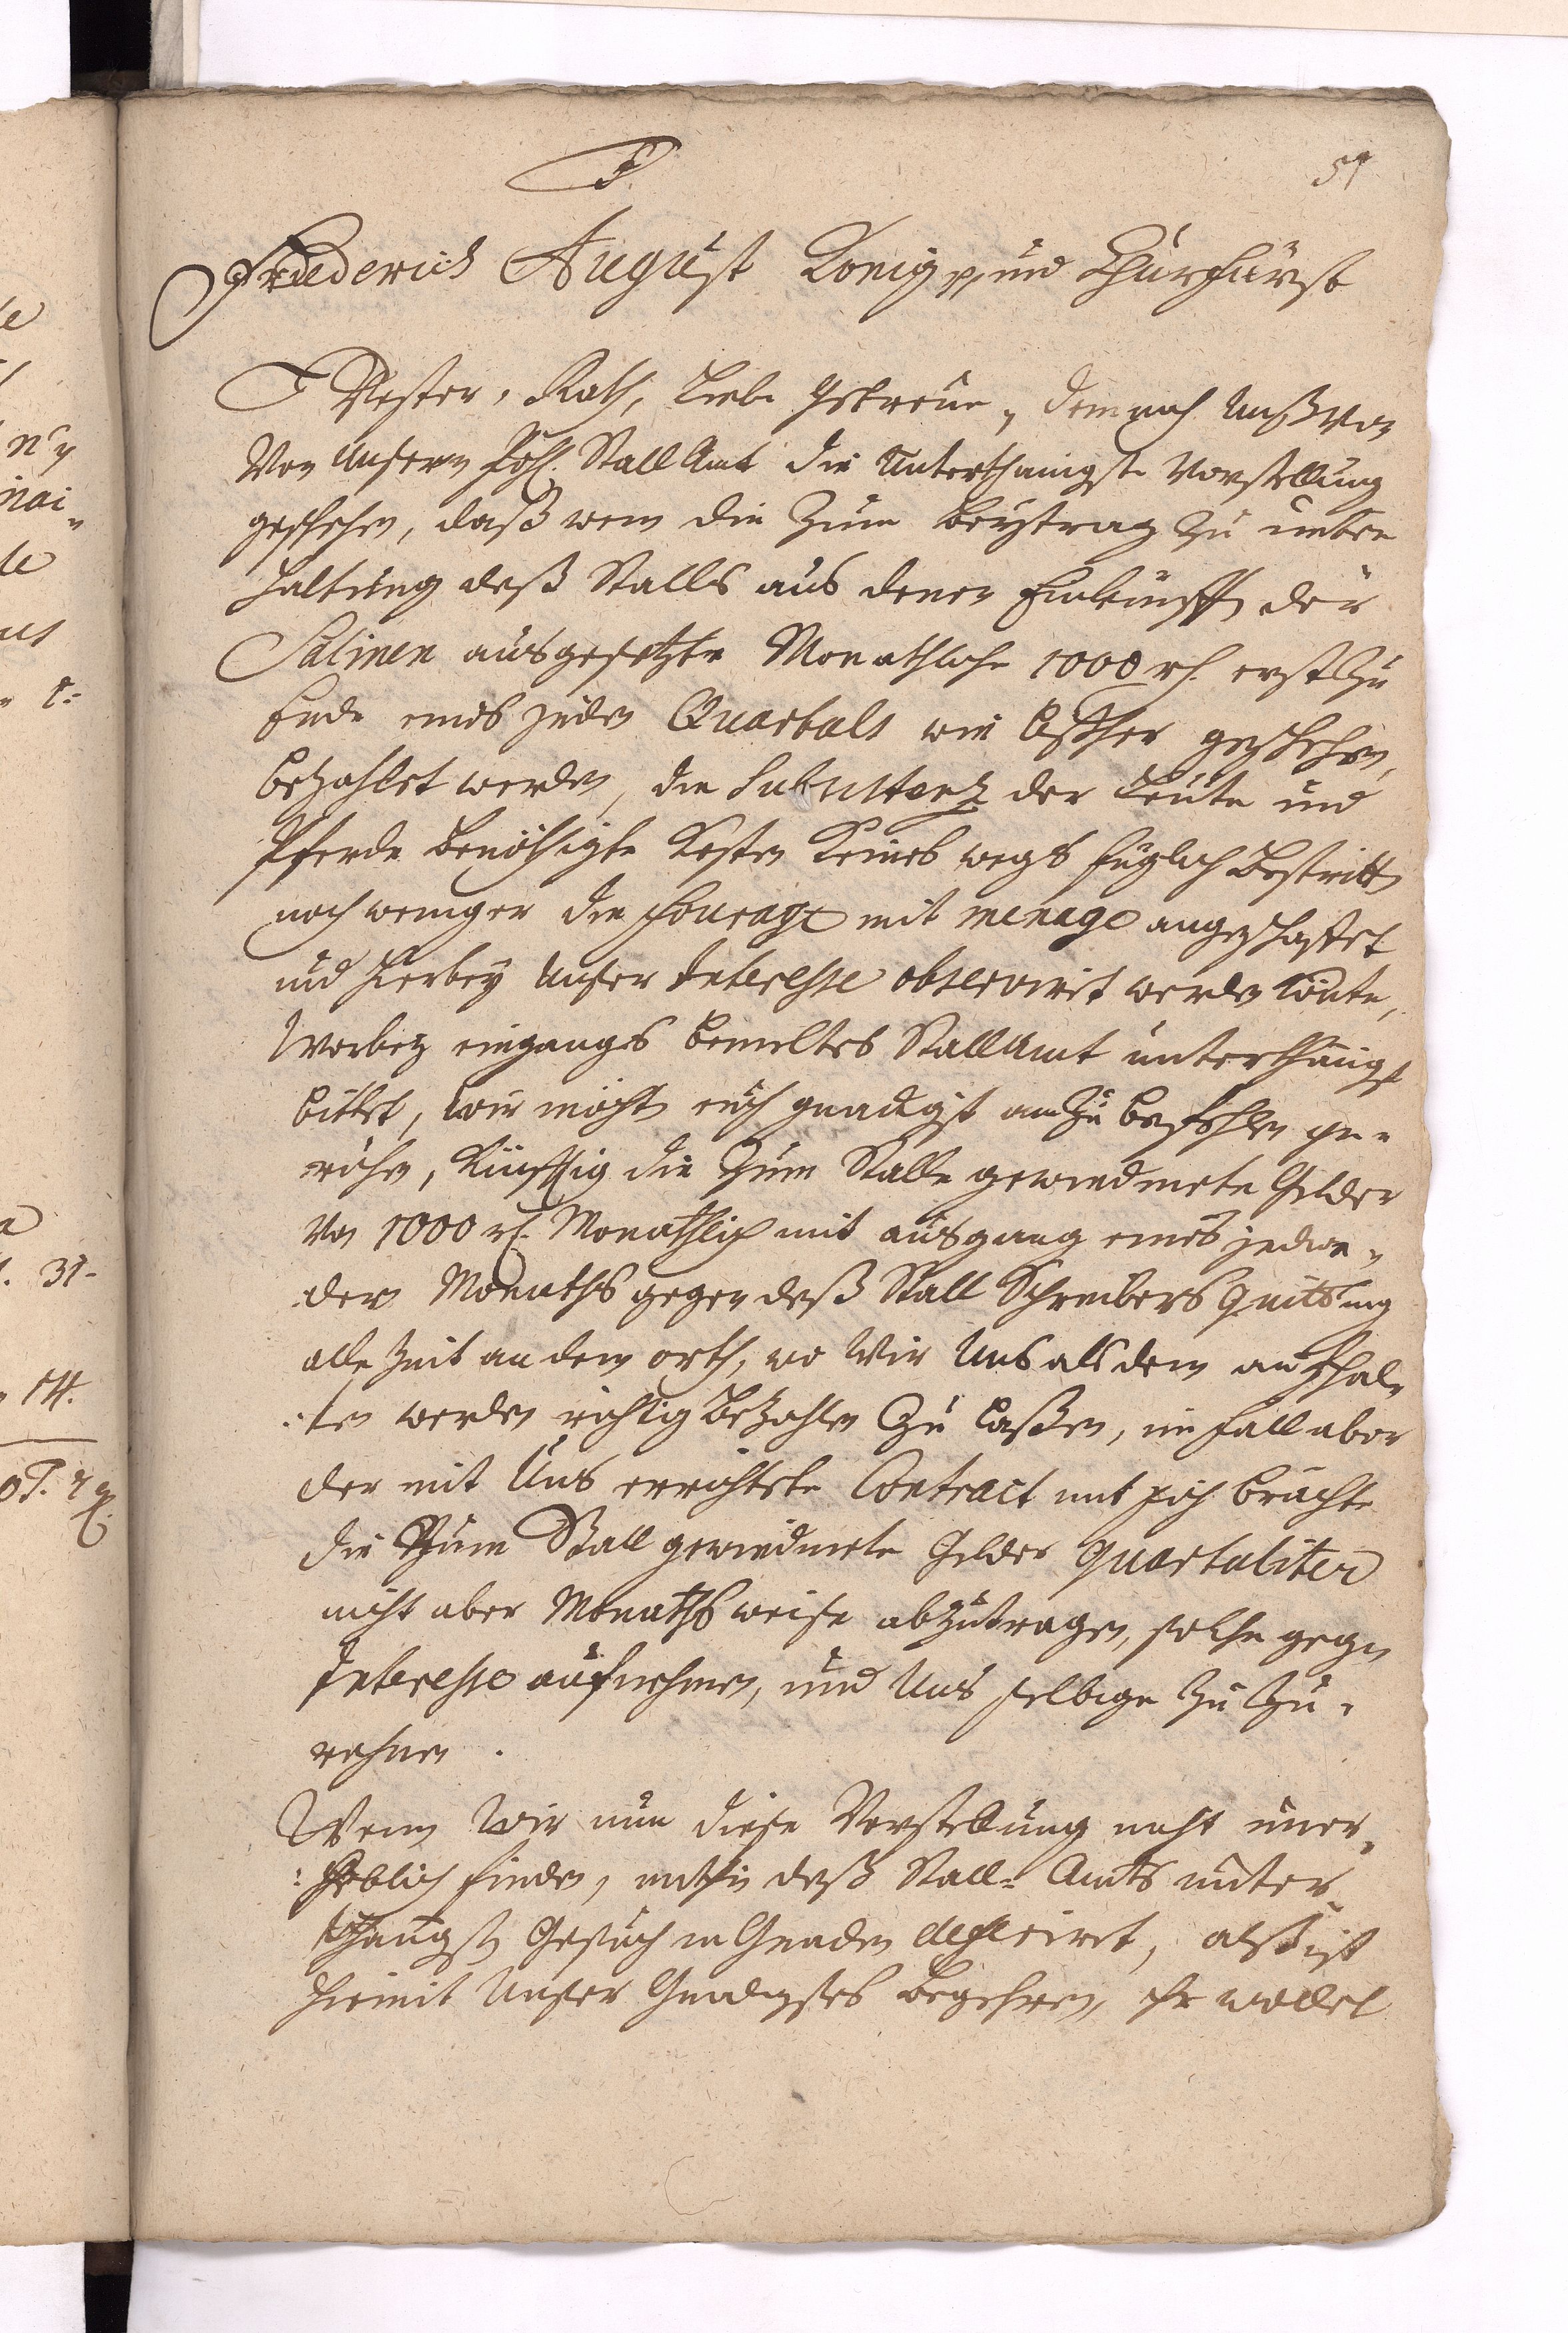 J.
59
Friederich August König pp und Churfürst
Vester, Rath, Liebe Getreüe, demnach Unß von
Von Unsern Pohl. Stall Amt die Unterthänigste Vorstellung
geschehen, daß wenn die Zum beytrag zu unter
haltung deß Stalls aus denen Einkünfften der
Salinen ausgesetzte Monathliche 1000 rh. erst zu
Ende eines jeden Quartals wie bißher geschehen,
bezahlet werden, die Subsistenz der Leüte und
Pferde benöthigte Kosten Keines wegs füglich bestritten
noch weniger die fourage mit menage angeschaffet
und hierbey Unser Interesse observiret werden könte,
Worbey eingangs bemeltes Stall Amt unterthänigst
bittet, wir möchten eüch gnädigst anzu befehlen ge-
ruhen, Künfftig die Zum Stalle gewiedmete Gelder
Von 1000 rh. Monathlich mit ausgang eines jedwe-
den Monaths gegen deß Stall Schreibers Quittung
alle Zeit an dem orth, wo Wir Uns als denn aufhal-
ten werden richtig bezahlen Zu laßen, im fall aber
der mit Uns errichtete Contract mit sich brächte
die Zum Stall gewiedmete Gelder quartaliter
nicht aber Monaths weise abzutragen, solche gegen
Interesse aufnehmen, und Uns selbige zu Zu-
rechnen.
Wenn Wir nun diese Vorstellung nicht uner-
heblich finden, mithin deß Stall-Amts unter-
thänigsten Gesuch in Gnaden deferiret, alß ist
hiermit Unser Gnädigstes begehren, ihr wollet